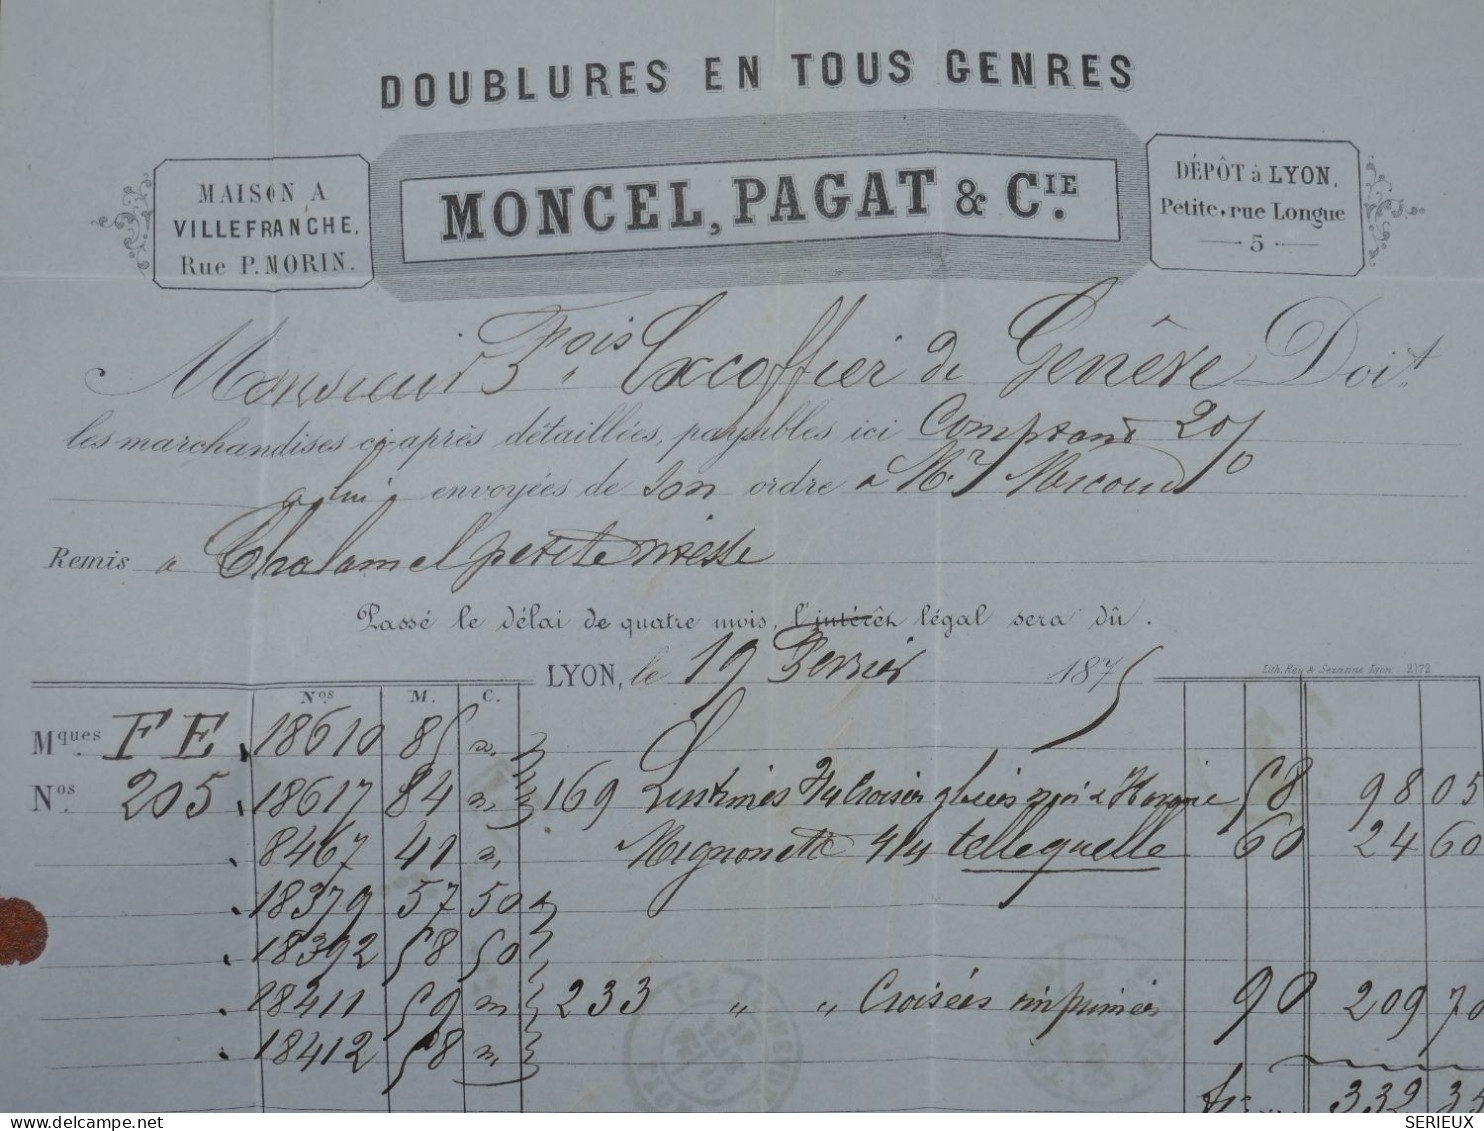 DOUBLURES EN TOUS GENRES
MAISON A
VILLEFRANCHE.
Rue P. MORIN.
MONCEL, PAGAT & CIE.
DÉPÔT à LYON,
Petite rue Longue
5
Monsieur Fois Excoffier de Genêve Doit
les marchandises ci-après détaillées, payables ici Comptant 2 0/0
envoyées de son ordre a Mr.
Remis a Chalamel petite vitesse
Passé le délai de quatre mois, l'intérêt légal sera dû.
LYON, le 19 Fevrier 1875
Lith. Rey & Sezanne Lyon 2172
Nos. M. C.
Mques FE 18610 85 ".
Nos. 205 18617 84 " 169 Lustrines 7/4 Croisées 58 98 05
8467 41 " Mignonette 4/4 telle quelle 60 24 60
18379 57 50
18392 58 50
18411 59 " 233 " " Croisées imprimées 90 209 70
18412 58 "
332 35
SERIEUX